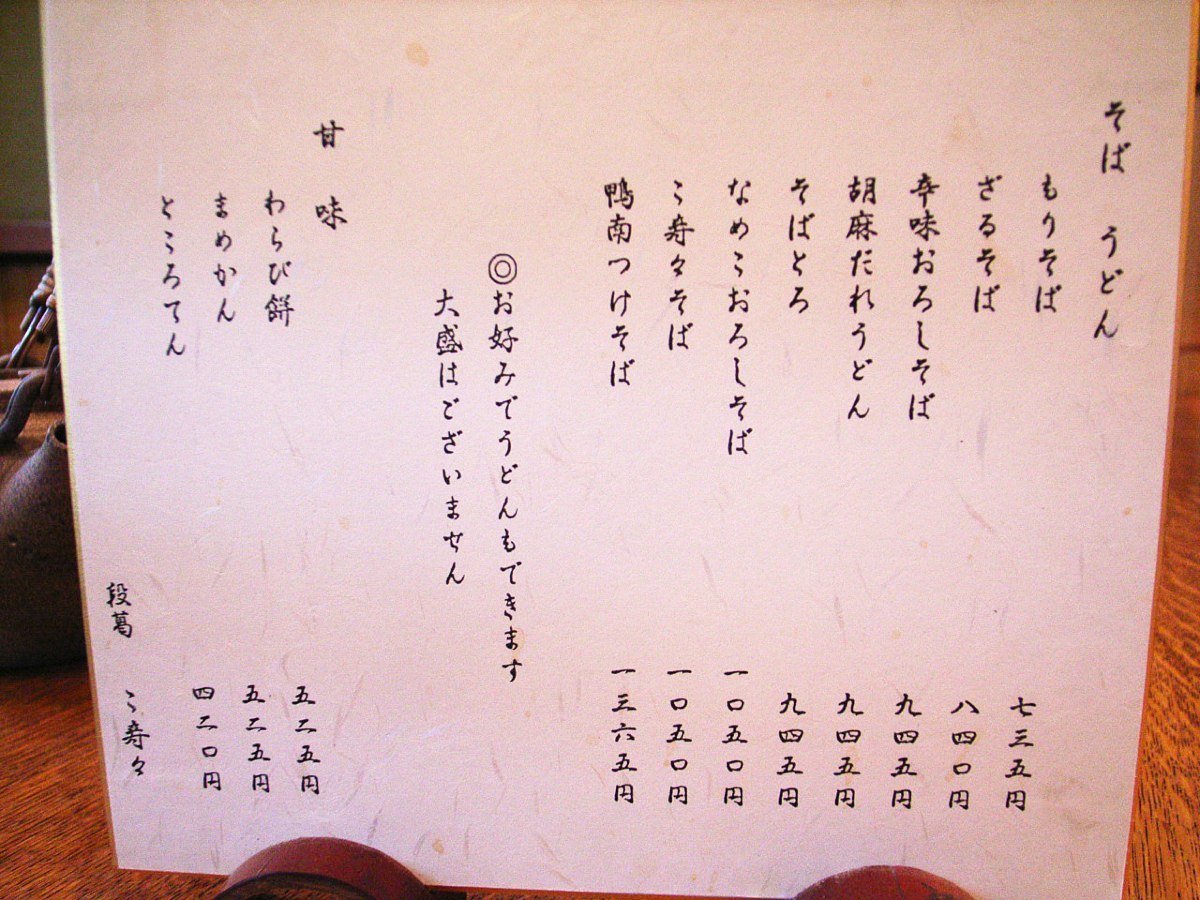 そば うどん
もりそば 七三五円
ざるそば 八四〇円
辛味おろしそば 九四五円
胡麻だれうどん 九四五円
そばとろ 九四五円
なめこおろしそば 一〇五〇円
こ寿々そば 一〇五〇円
鴨南つけそば 一三六五円
◎お好みでうどんもできます
大盛はございません
甘味
わらび餅 五二五円
まめかん 五二五円
ところてん 四二〇円
段葛 こ寿々